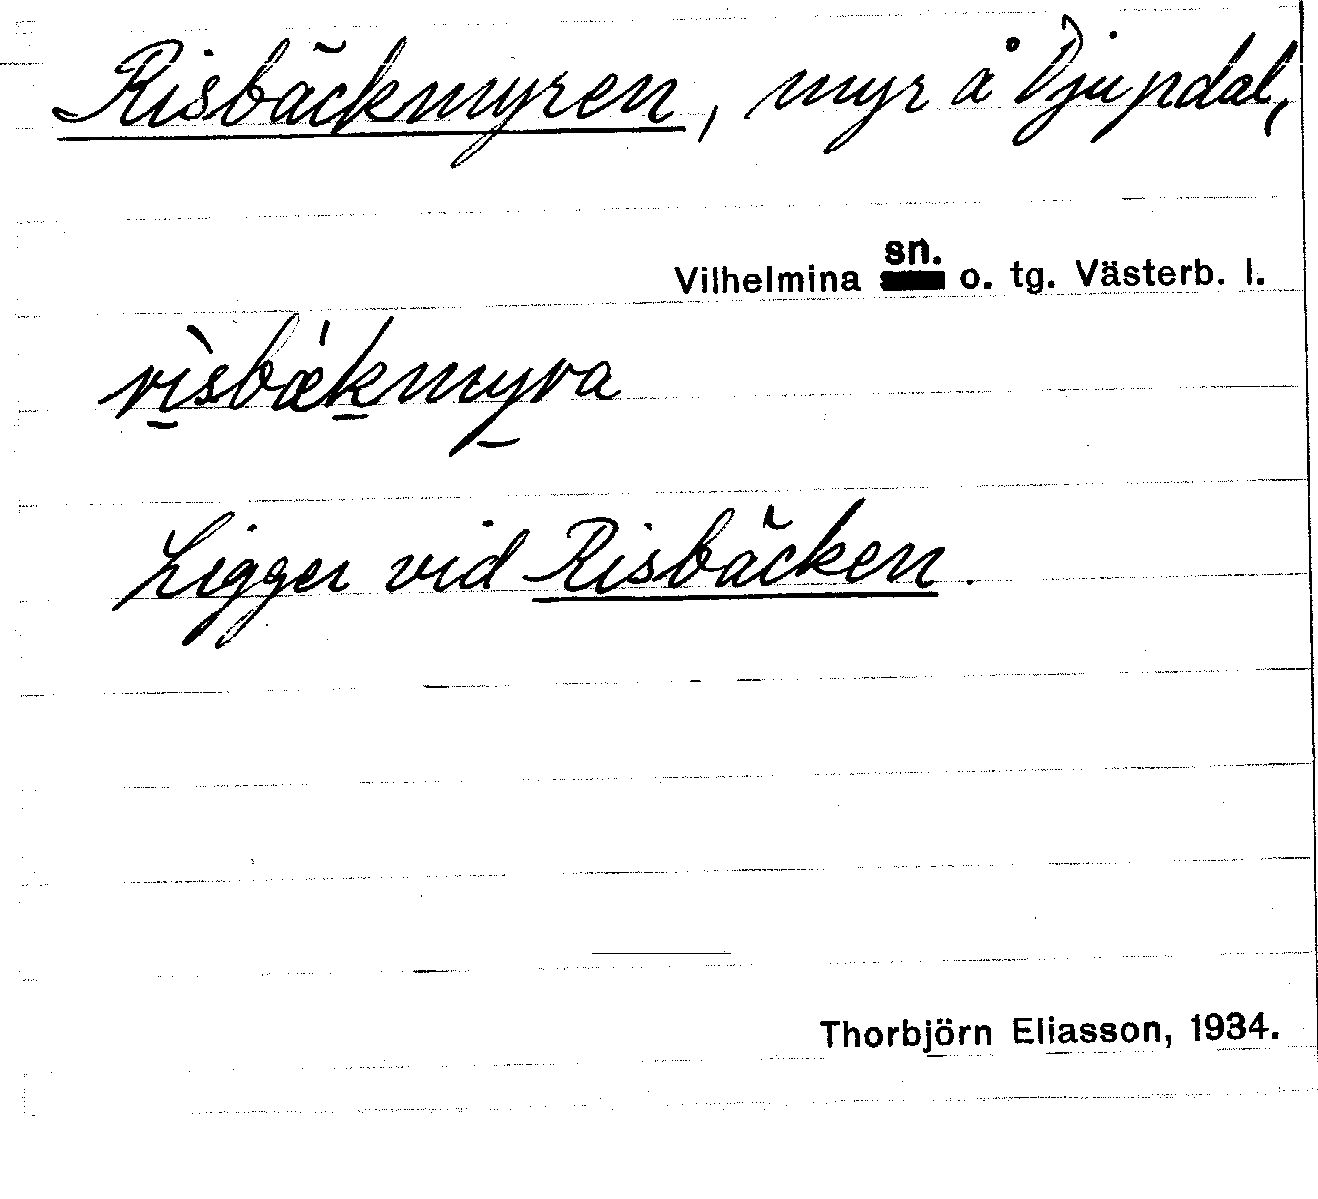 Risbäckmyren, myr å Djupdal,
Vilhelmina sn. o. tg. Västerb. l.
rìsbǽkmyra
Ligger vid Risbäcken.
Thorbjörn Eliasson, 1934.